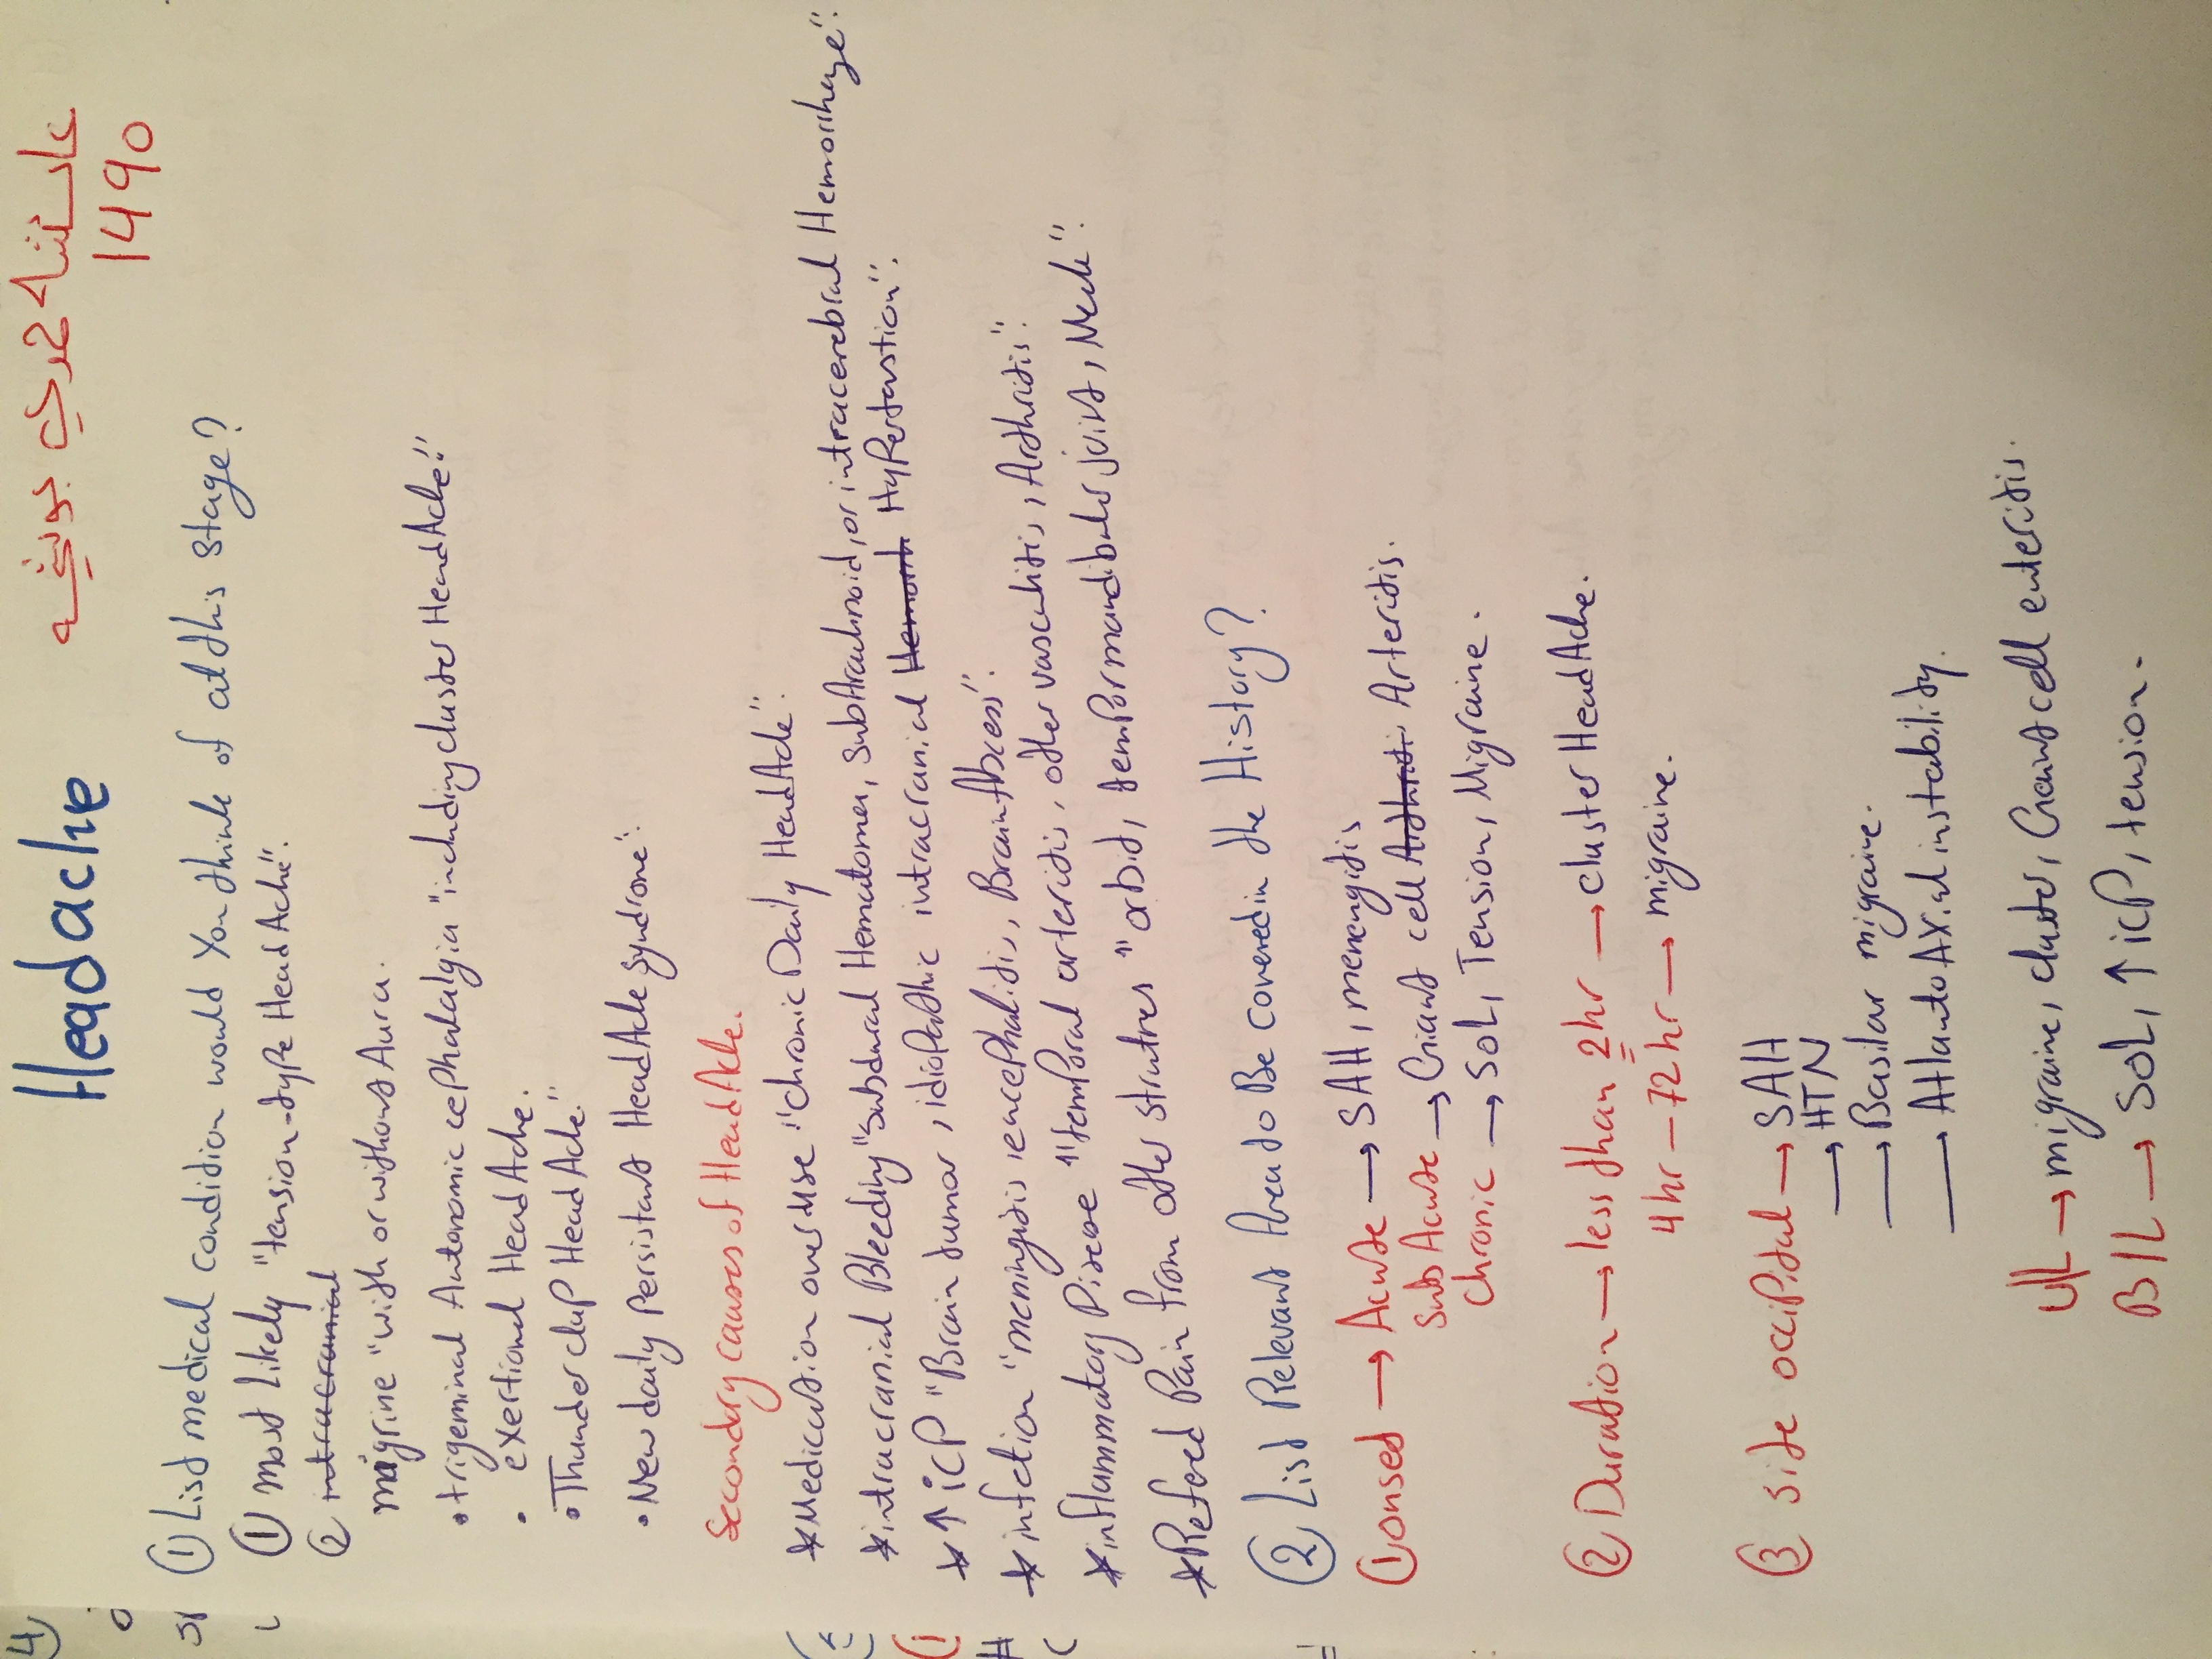 Headache
1490
① List medical condition would you think of at this stage?
① most likely "tension-type HeadAche".
② intracranial
migrine "with or without Aura.
• trigeminal Autonomic cephalalgia "including cluster HeadAche"
• exertional HeadAche.
• Thunder clap HeadAche"
• New daily Persistant HeadAche syndrone".
Secondery causes of HeadAche.
* Medication over use "chronic Daily HeadAche".
* intracranial Bleeding "subdural Hematomer, subArachnoid, or intracerebral Hemorrhage".
* ↑ icP "Brain tumor, idiopathic intracranial HyPertenstion".
* infection "meningitis, encephalitis, BrainAbcess".
* inflammatory Disease "temporal arteritis, other vasculitis, Arthritis".
* Refered Pain from other strutres "orbit, temPormandibuler joint, Neck".
② List Relevant Area to Be covered in the History?
① onset → Acute → SAH, menengitis
sub Acute → Giant cell Arteritis.
chronic → SOL, Tension, Migraine.
② Duration → less than 2hr → cluster HeadAche.
4hr – 72hr → migraine.
③ site occipital → SAH
→ HTN
→ Basilar migraine.
→ AtlantoAxial instability.
U/L → migraine, cluster, Giant cell enteritis.
B/L → SOL, ↑icP, tension.